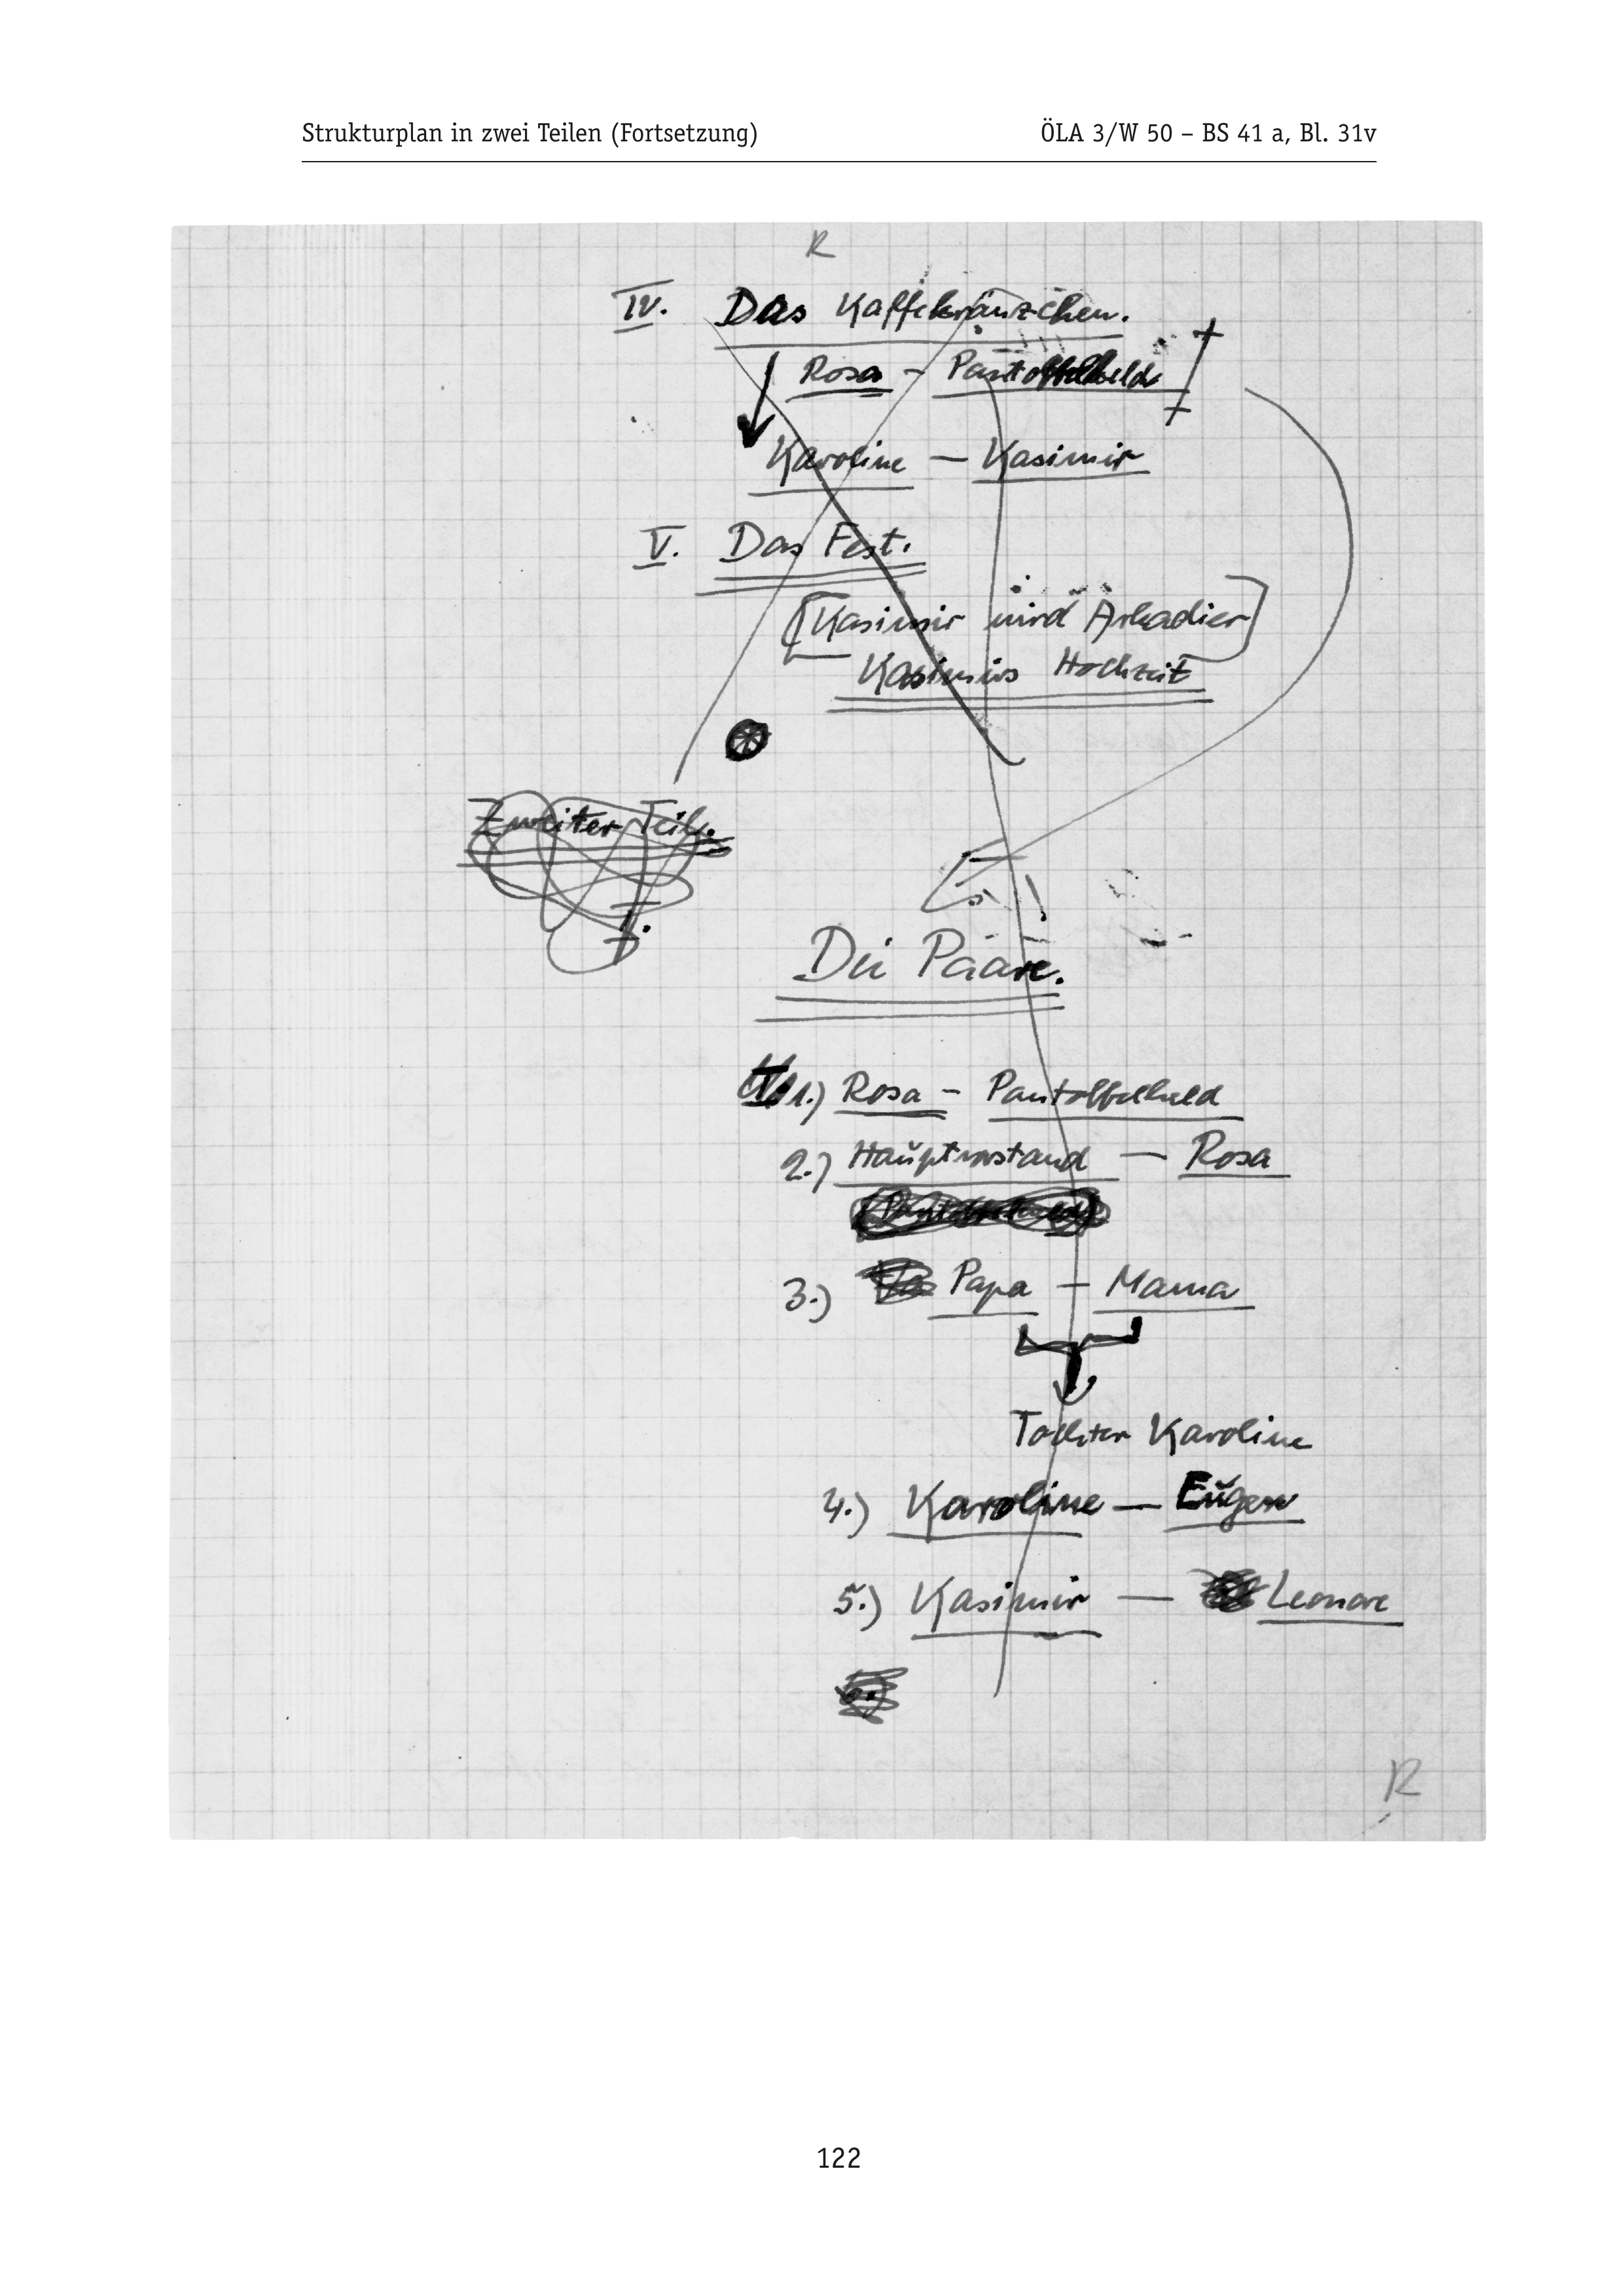 Strukturplan in zwei Teilen (Fortsetzung) ÖLA 3/W 50 – BS 41 a, Bl. 31v
R
IV. Das Kaffekränzchen.
Rosa – Pantoffelheld
Karoline – Kasimir
V. Das Fest.
[Kasimir wird Arkadier]
Kasimirs Hochzeit
Zweiter Teil.
I.
Die Paare.
1.) Rosa – Pantoffelheld
2.) Hauptvorstand – Rosa
(Pantoffelheld)
3.) Papa – Mama
Tochter Karoline
4.) Karoline – Eugen
5.) Kasimir – Leonore
R
122